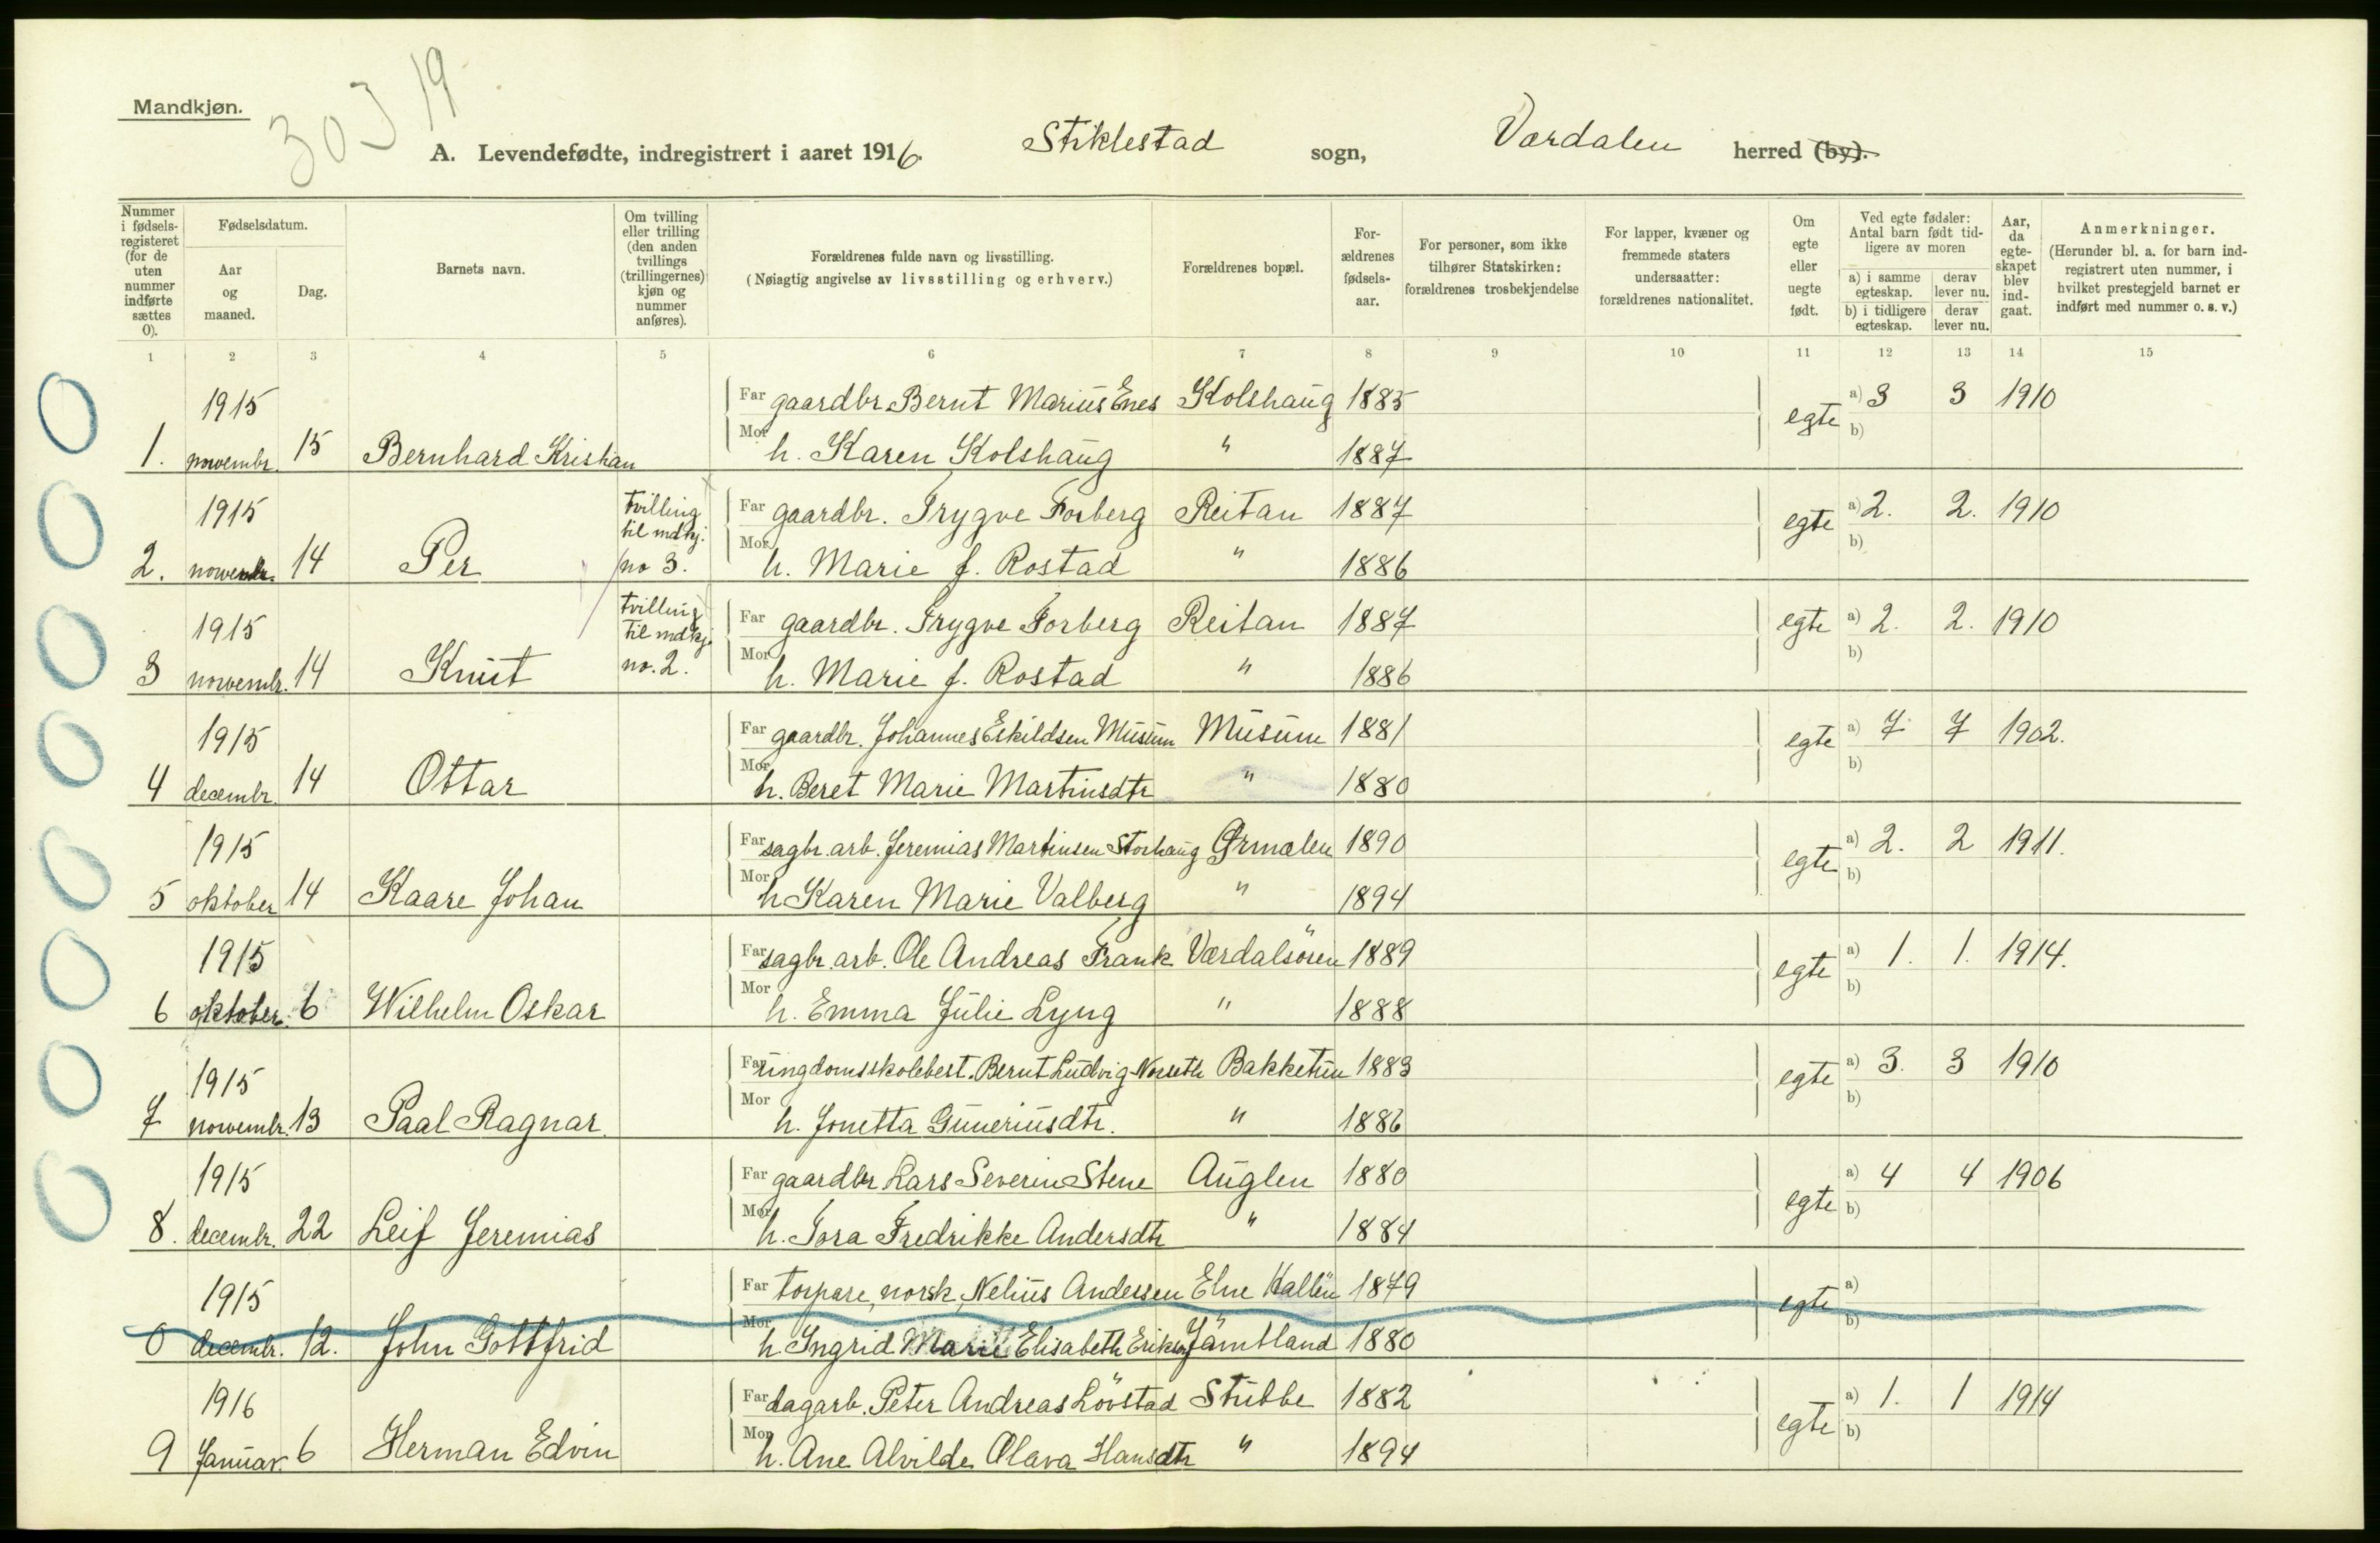 Mandkjøn.
30 3 19
A. Levendefødte, indregistrert i aaret 1916. Stiklestad sogn, Værdalen herred (by).
Nummer i fødselsregisteret (for de uten nummer indførte sættes 0).
Fødselsdatum.
Aar og maaned.
Dag.
Barnets navn.
Om tvilling eller trilling (den anden tvillings (trillingernes) kjøn og nummer anføres).
Forældrenes fulde navn og livsstilling.
(Nøiagtig angivelse av livsstilling og erhverv.)
Forældrenes bopæl.
Forældrenes fødselsaar.
For personer, som ikke tilhører Statskirken: forældrenes trosbekjendelse
For lapper, kvæner og fremmede staters undersaatter: forældrenes nationalitet.
Om egte eller uegte født.
Ved egte fødsler: Antal barn født tidligere av moren
a) i samme egteskap. derav lever nu.
b) i tidligere egteskap. derav lever nu.
Aar, da egteskapet blev indgaat.
Anmerkninger.
(Herunder bl. a. for barn indregistrert uten nummer, i hvilket prestegjeld barnet er indført med nummer o. s. v.)
1 2 3 4 5 6 7 8 9 10 11 12 13 14 15
1915 Far gaardbr. Bernt Marius Enes Kolshaug 1885 egte a) 3 3 1910
1. novembr. 15 Bernhard Kristian Mor h. Karen Kolshaug " 1887 b)
1915 tvilling til mdkj. no 3. Far gaardbr. Trygve Forberg Reitan 1887 egte a) 2. 2. 1910
2. novembr. 14 Per Mor h. Marie f. Rostad " 1886 b)
1915 tvilling til mdkj. no. 2. Far gaardbr. Trygve Forberg Reitan 1887 egte a) 2. 2. 1910
3 novembr. 14 Knut Mor h. Marie f. Rostad " 1886 b)
1915 Far gaardbr. Johannes Eskildsen Musum Musum 1881 egte a) 7 7 1902.
4 decembr. 14 Ottar Mor h. Beret Marie Martinsdtr " 1880 b)
1915 Far sagbr. arb. Jeremias Martinsen Storhaug Ørmelen 1890 egte a) 2. 2 1911.
5 oktober 14 Kaare Johan Mor h Karen Marie Valberg " 1894 b)
1915 Far sagbr. arb. Ole Andreas Frank Værdalsören 1889 egte a) 1. 1. 1914.
6 oktober. 6 Wilhelm Oskar Mor h. Emma Julie Lyng " 1888 b)
1915 Far ungdomsskolebest. Bernt Ludvig Bakketun 1883 egte a) 3. 3 1910
7 novembr. 13 Paal Ragnar. Mor h. Jonetta Guneriusdtr. " 1886 b)
1915 Far gaardbr Lars Severin Stene Auglen 1880 egte a) 4 4 1906
8. decembr. 22 Leif Jeremias Mor h. Tora Fredrikke Andersdtr " 1884 b)
1915 Far torpare, norsk, Nelius Andersen Elne Kallün 1879 egte a)
0 decembr. 12. John Gottfrid Mor h. Ingrid Marie Elisabeth Jämtland 1880 b)
1916 Far dagarb. Peter Andreas Lövstad Stubbe 1882 egte a) 1. 1 1914
9 Januar. 6 Herman Edvin Mor h. Ane Alvilde Olava Hansdtr " 1894 b)